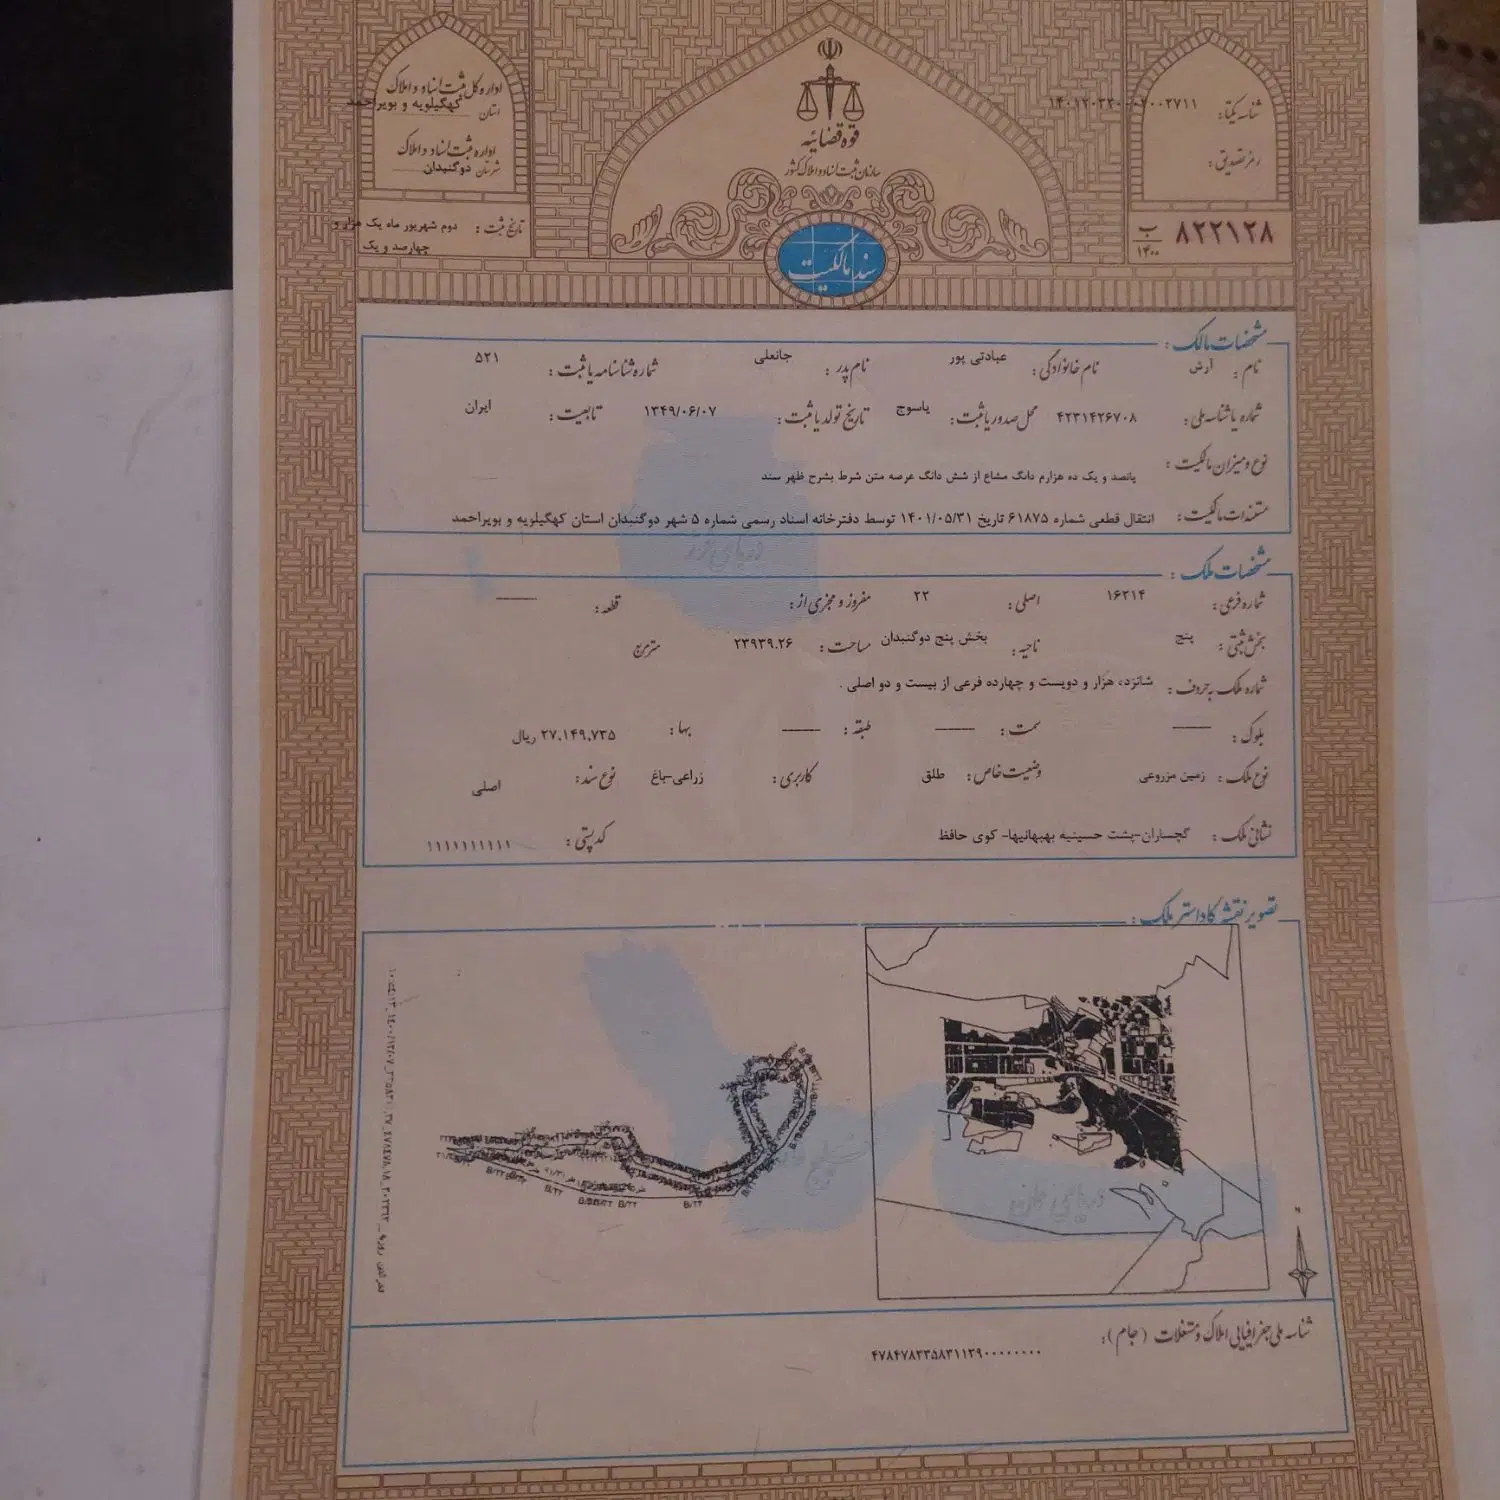 اداره کل ثبت اسناد و املاک
استان کهگیلویه و بویراحمد
اداره ثبت اسناد و املاک
شهرستان دوگنبدان
تاریخ ثبت : دوم شهریور ماه یک هزار و
چهارصد و یک
قوه قضائیه
سازمان ثبت اسناد و املاک کشور
سند مالکیت
شناسه یکتا:
رمز تصدیق :
ب
۱۴۰۰
۸۲۲۱۲۸
مشخصات مالک :
نام : آرش نام خانوادگی : عبادتی پور نام پدر : جانعلی شماره شناسنامه یا ثبت : ۵۲۱
شماره یا شناسه ملی : ۴۲۳۱۴۲۶۷۰۸ محل صدور یا ثبت : یاسوج تاریخ تولد یا ثبت : ۱۳۴۹/۰۶/۰۷ تابعیت : ایران
نوع و میزان مالکیت :
پانصد و یک ده هزارم دانگ مشاع از شش دانگ عرصه متن شرط بشرح ظهر سند
مستندات مالکیت : انتقال قطعی شماره ۶۱۸۷۵ تاریخ ۱۴۰۱/۰۵/۳۱ توسط دفترخانه اسناد رسمی شماره ۵ شهر دوگنبدان استان کهگیلویه و بویراحمد
دریای خزر
مشخصات ملک :
شماره فرعی : ۱۶۲۱۴ اصلی : ۲۲ مفروز و مجزی از : قطعه :
بخش ثبتی : پنج ناحیه : بخش پنج دوگنبدان مساحت : ۲۳۹۳۹.۲۶ مترمربع
شماره ملک به حروف : شانزده هزار و دویست و چهارده فرعی از بیست و دو اصلی .
بلوک : سمت : طبقه : بها : ۲۷,۱۴۹,۷۳۵ ریال
نوع ملک : زمین مزروعی وضعیت خاص : طلق کاربری : زراعی-باغ نوع سند : اصلی
نشانی ملک : گچساران-پشت حسینیه بهبهانیها- کوی حافظ کد پستی : ۱۱۱۱۱۱۱۱۱۱
تصویر نقشه کاداستر ملک :
دریای عمان
N
B/۲۲
شناسه ملی جغرافیایی املاک و مستغلات (جام):